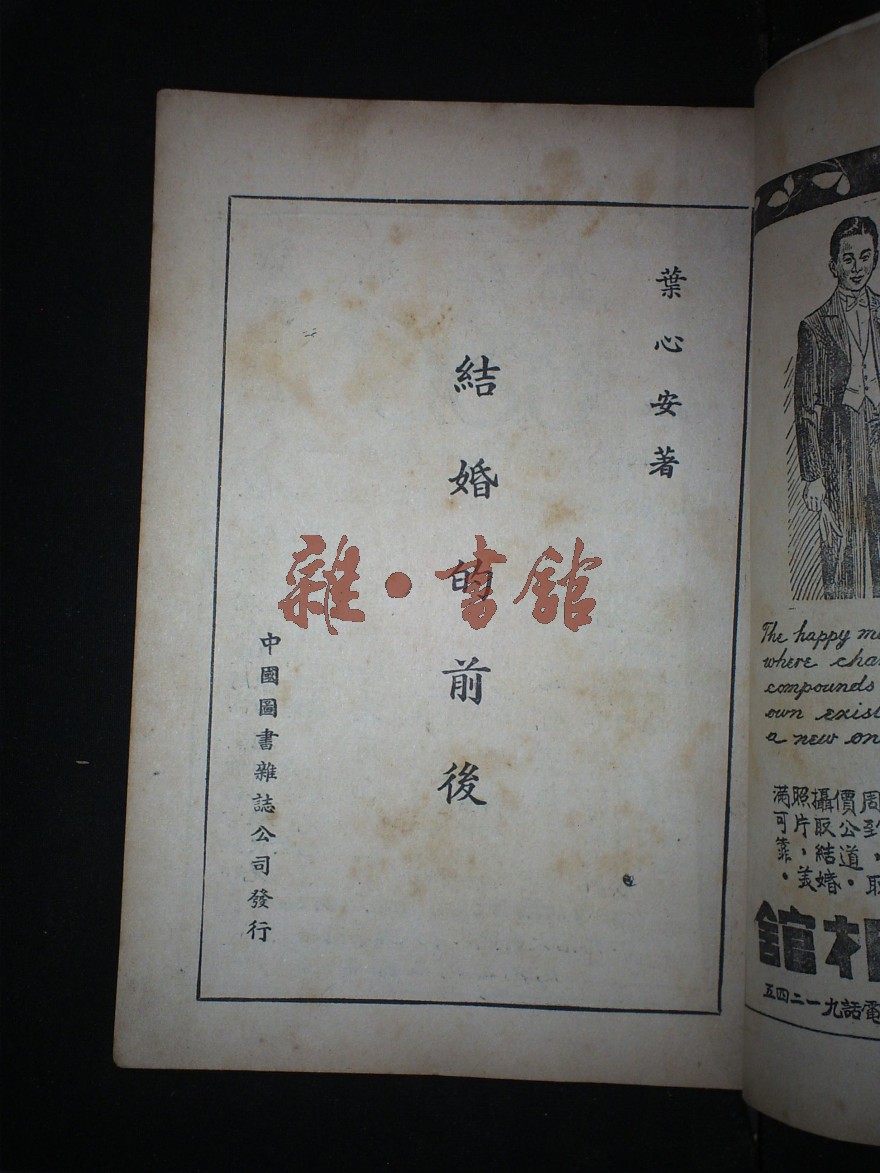 葉心安著
結婚的前後
中國圖書雜誌公司發行
雜·書館
The happy
where
compounds
own
a new
周
價公道。
攝取結婚
照片，美
滿可靠。
相館
電話九一二四五